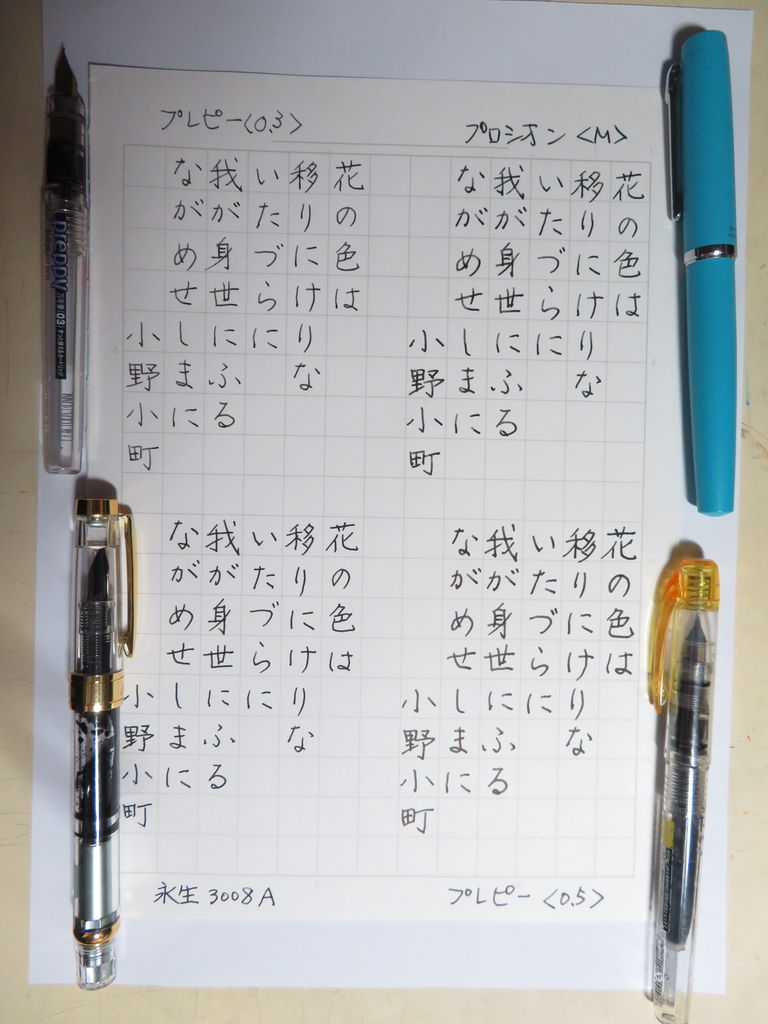 プレピー〈0.3〉
花の色は
移りにけりな
いたづらに
我が身世にふる
ながめせしまに
小野小町
プロシオン〈M〉
花の色は
移りにけりな
いたづらに
我が身世にふる
ながめせしまに
小野小町
花の色は
移りにけりな
いたづらに
我が身世にふる
ながめせしまに
小野小町
永生 3008A
花の色は
移りにけりな
いたづらに
我が身世にふる
ながめせしまに
小野小町
プレピー〈0.5〉
preppy